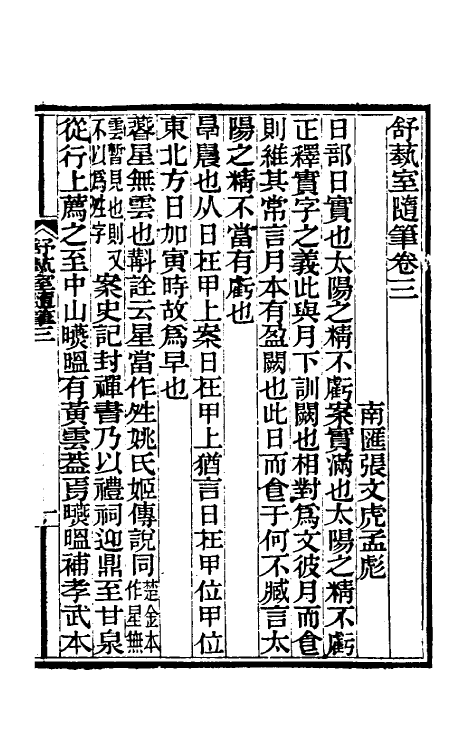 舒蓺室隨筆卷三
南匯張文虎孟彪
日部日實也太陽之精不虧案實滿也太陽之精不虧
正釋實字之義此與月下訓闕也相對爲文彼月而食
則維其常言月本有盈闕也此日而食于何不臧言太
陽之精不當有虧也
早晨也从日在甲上案日在甲上猶言日在甲位甲位
東北方日加寅時故爲早也
䁵星無雲也斠詮云星當作夝姚氏姬傳說同楚金本作星無
雲暫見也則又不以爲夝字案史記封禪書乃以禮祠迎鼎至甘泉
從行上薦之至中山曣㬈有黃雲葢焉曣㬈補孝武本
舒蓺室隨筆三
一